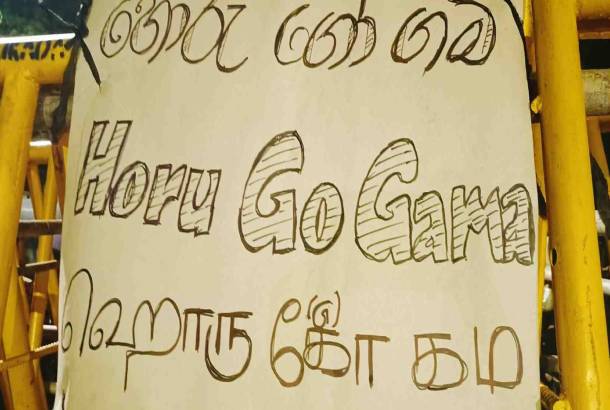 හොරු ගෝ ගම
Horu Go Gama
ஹொரு கோ(g) கம